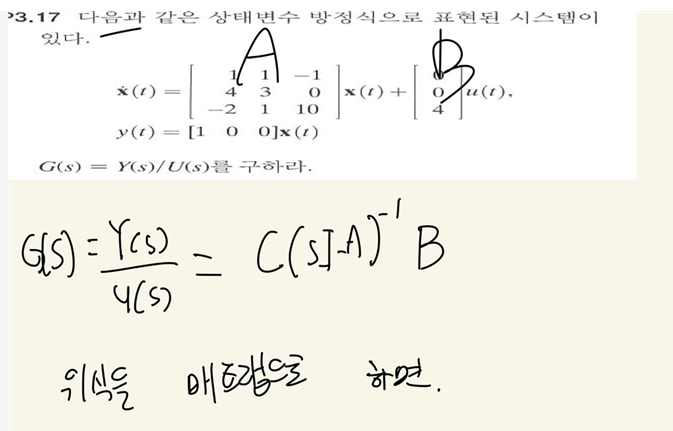 P3.17 다음과 같은 상태변수 방정식으로 표현된 시스템이
있다.
A B
ẋ(t) = [ 1 1 −1 ; 4 3 0 ; −2 1 10 ] x(t) + [ 0 ; 0 ; 4 ] u(t),
y(t) = [1 0 0]x(t)
G(s) = Y(s)/U(s)를 구하라.
G(s) = Y(s)/U(s) = C(sI-A)⁻¹ B
위식을 매트랩으로 하면.